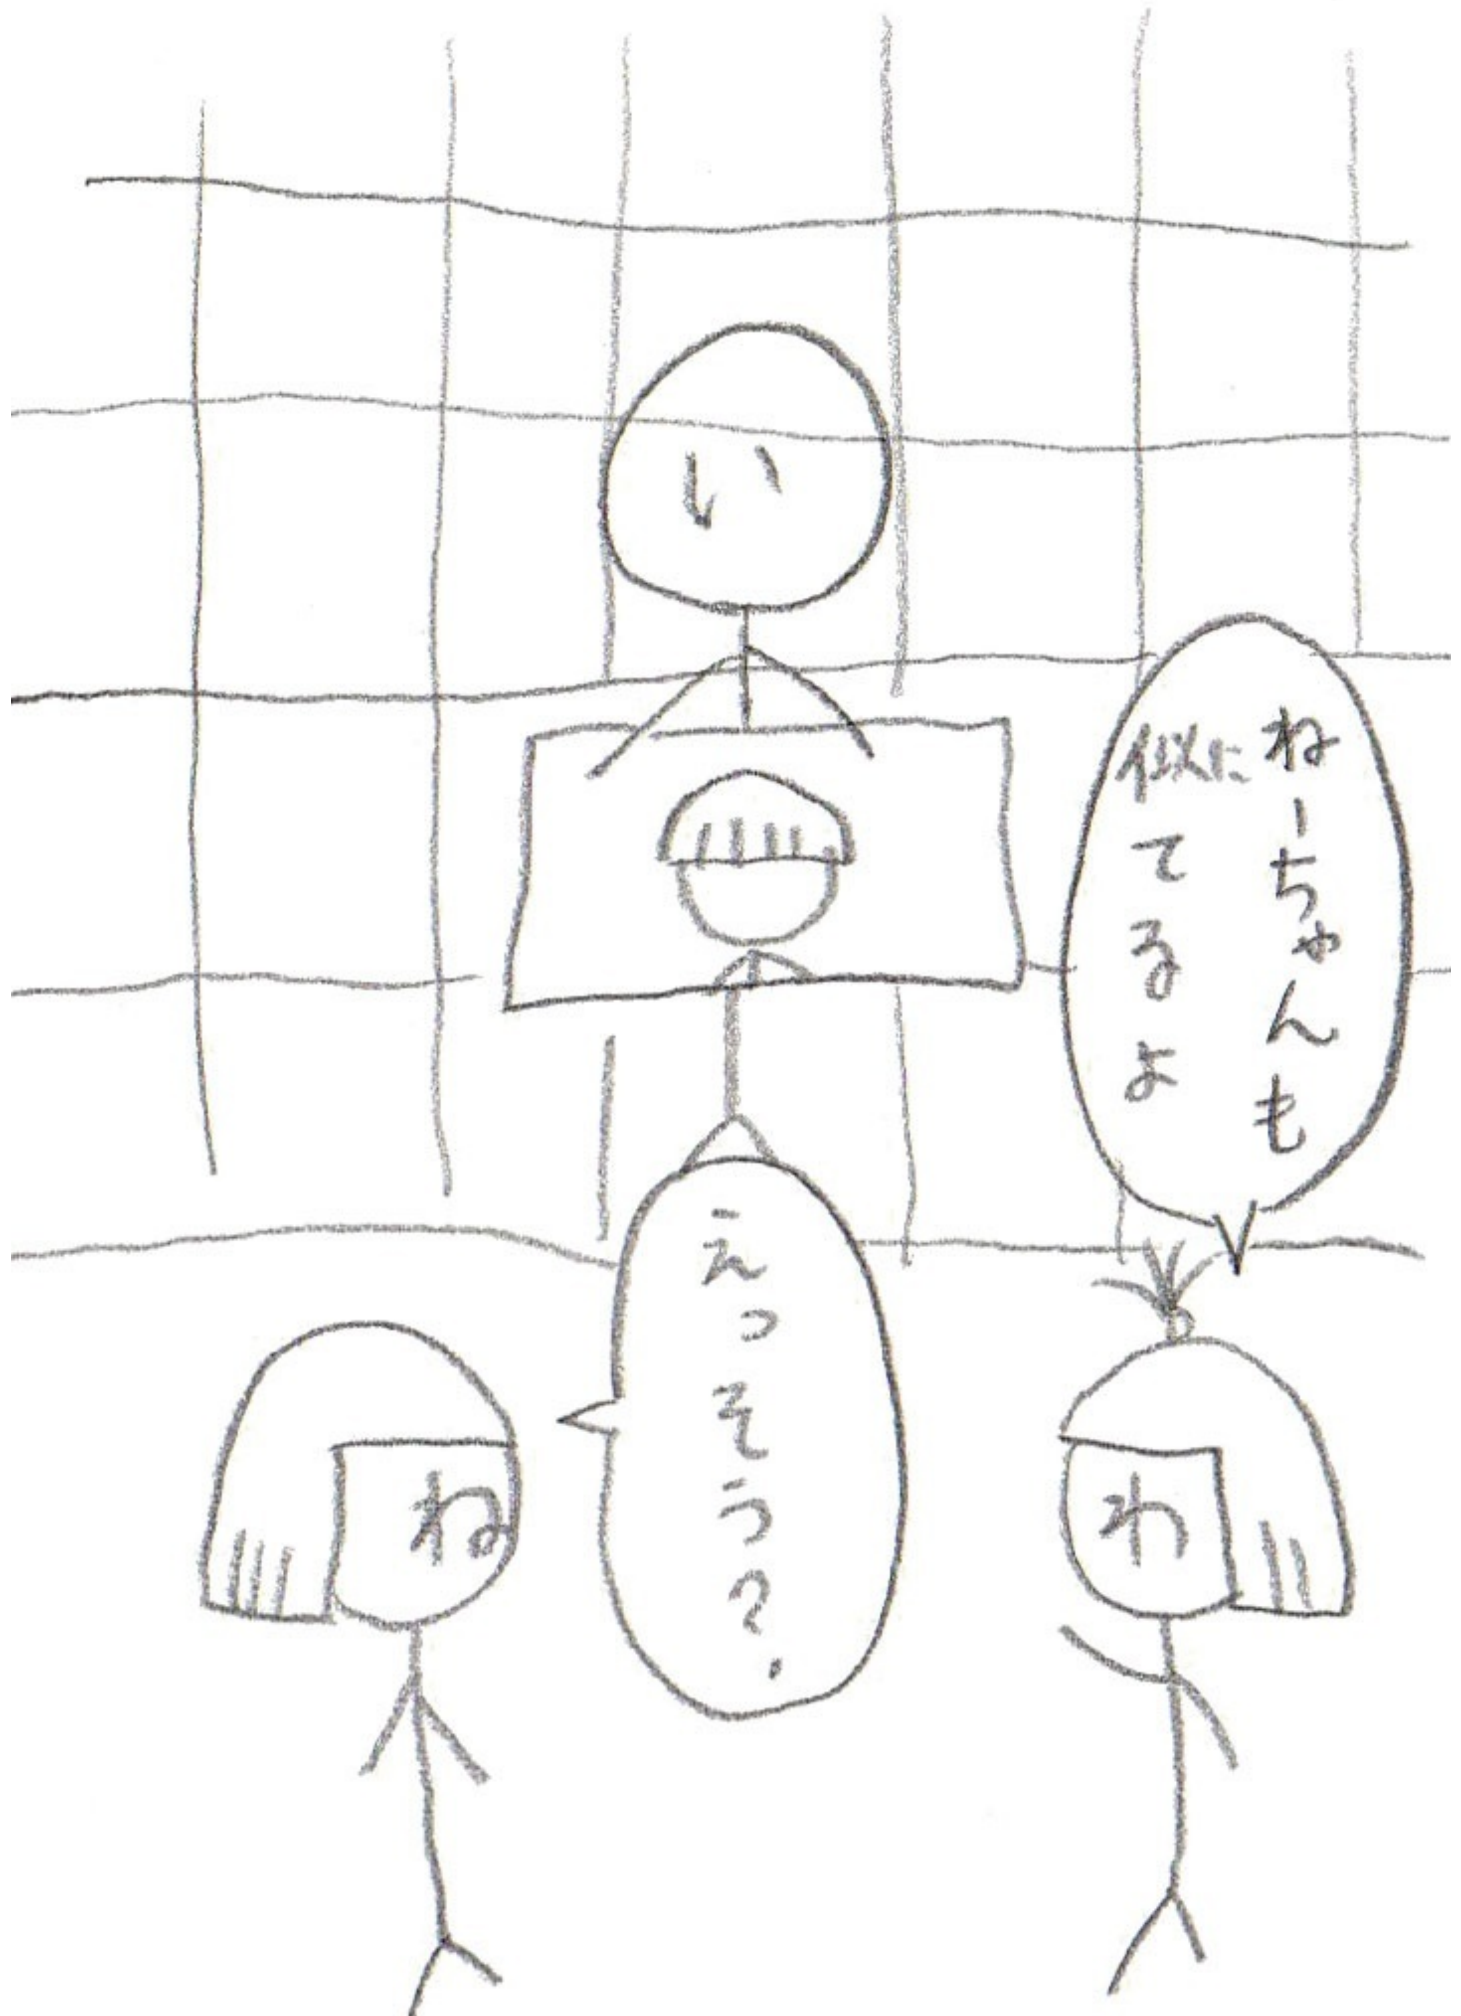 い
ねーちゃんも
似に
てるよ
えっそう?
ね
わ